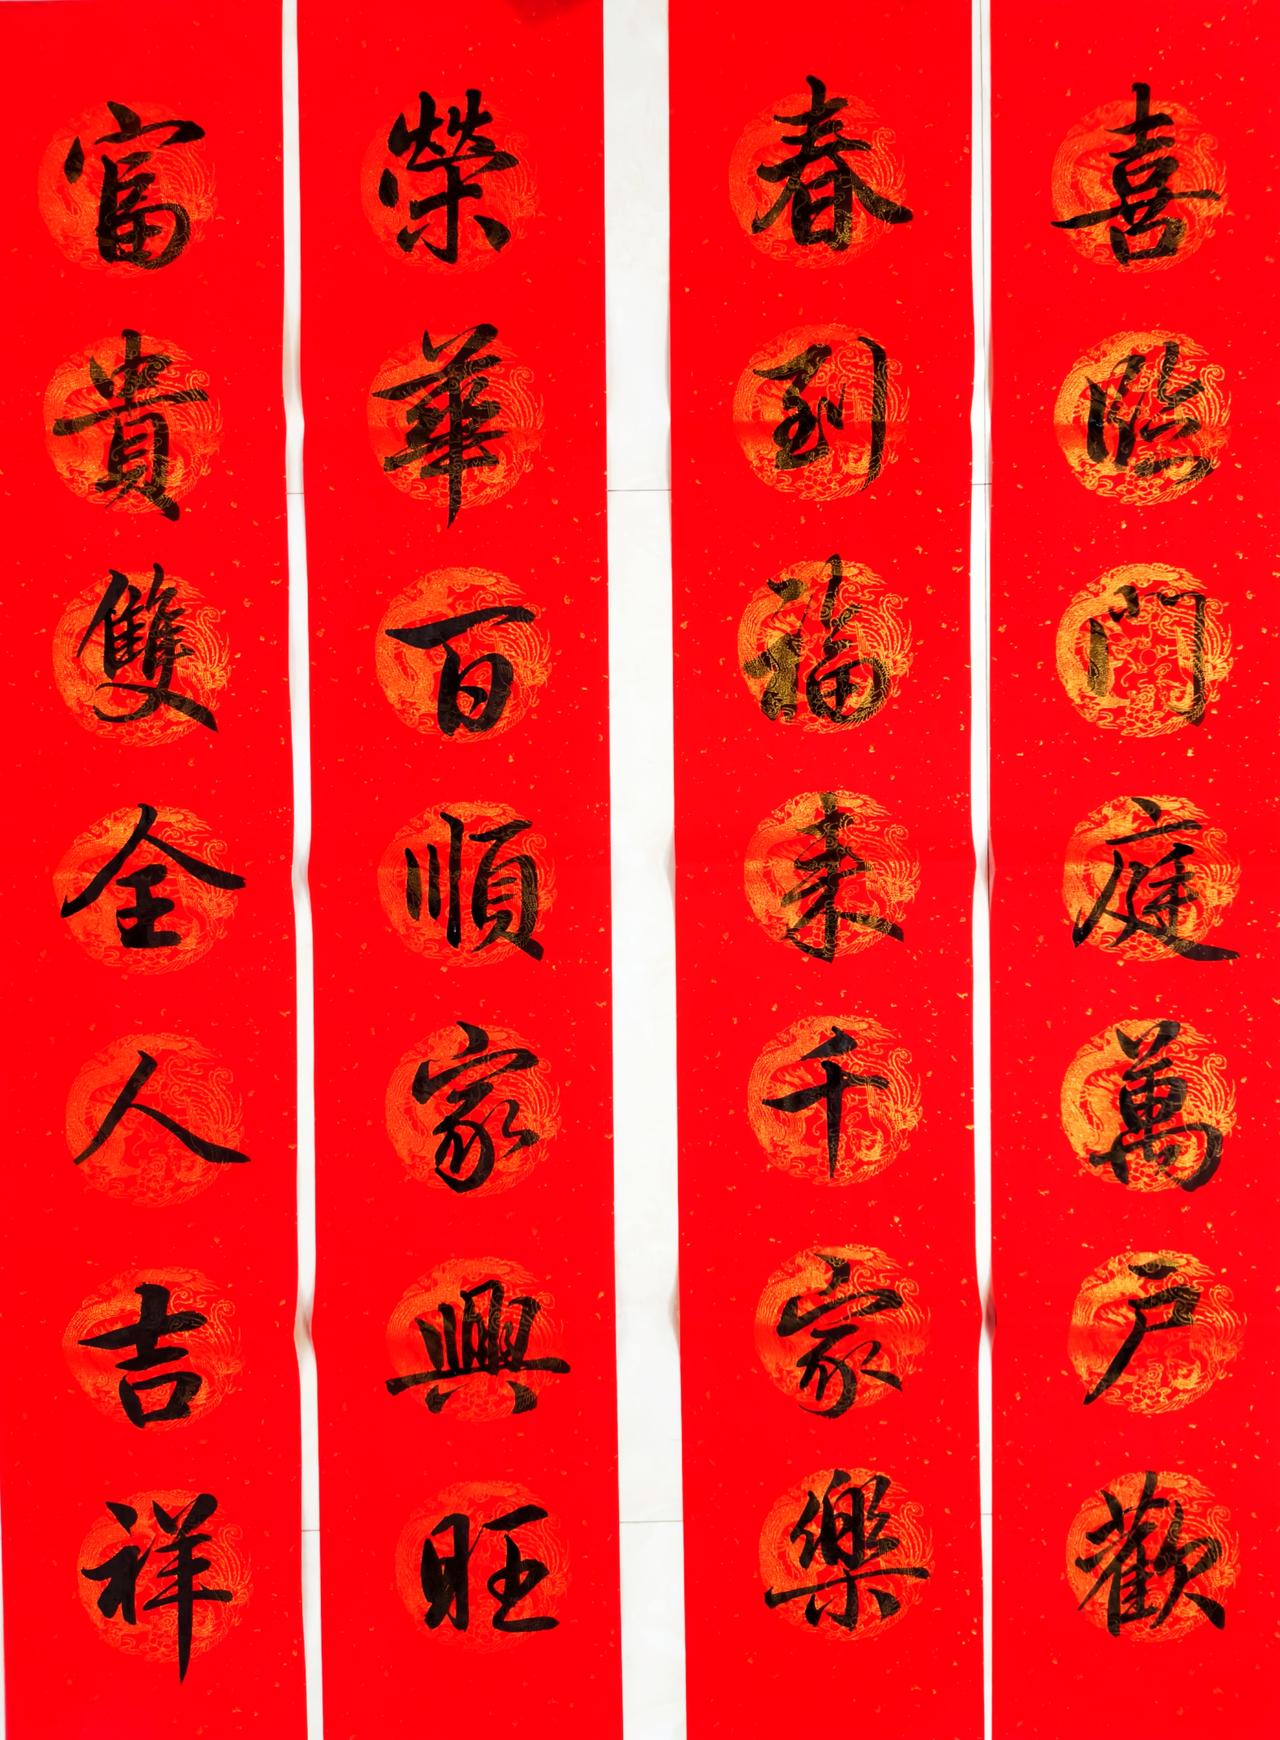 喜臨門庭萬戶歡
春到福來千家樂
榮華百順家興旺
富貴雙全人吉祥